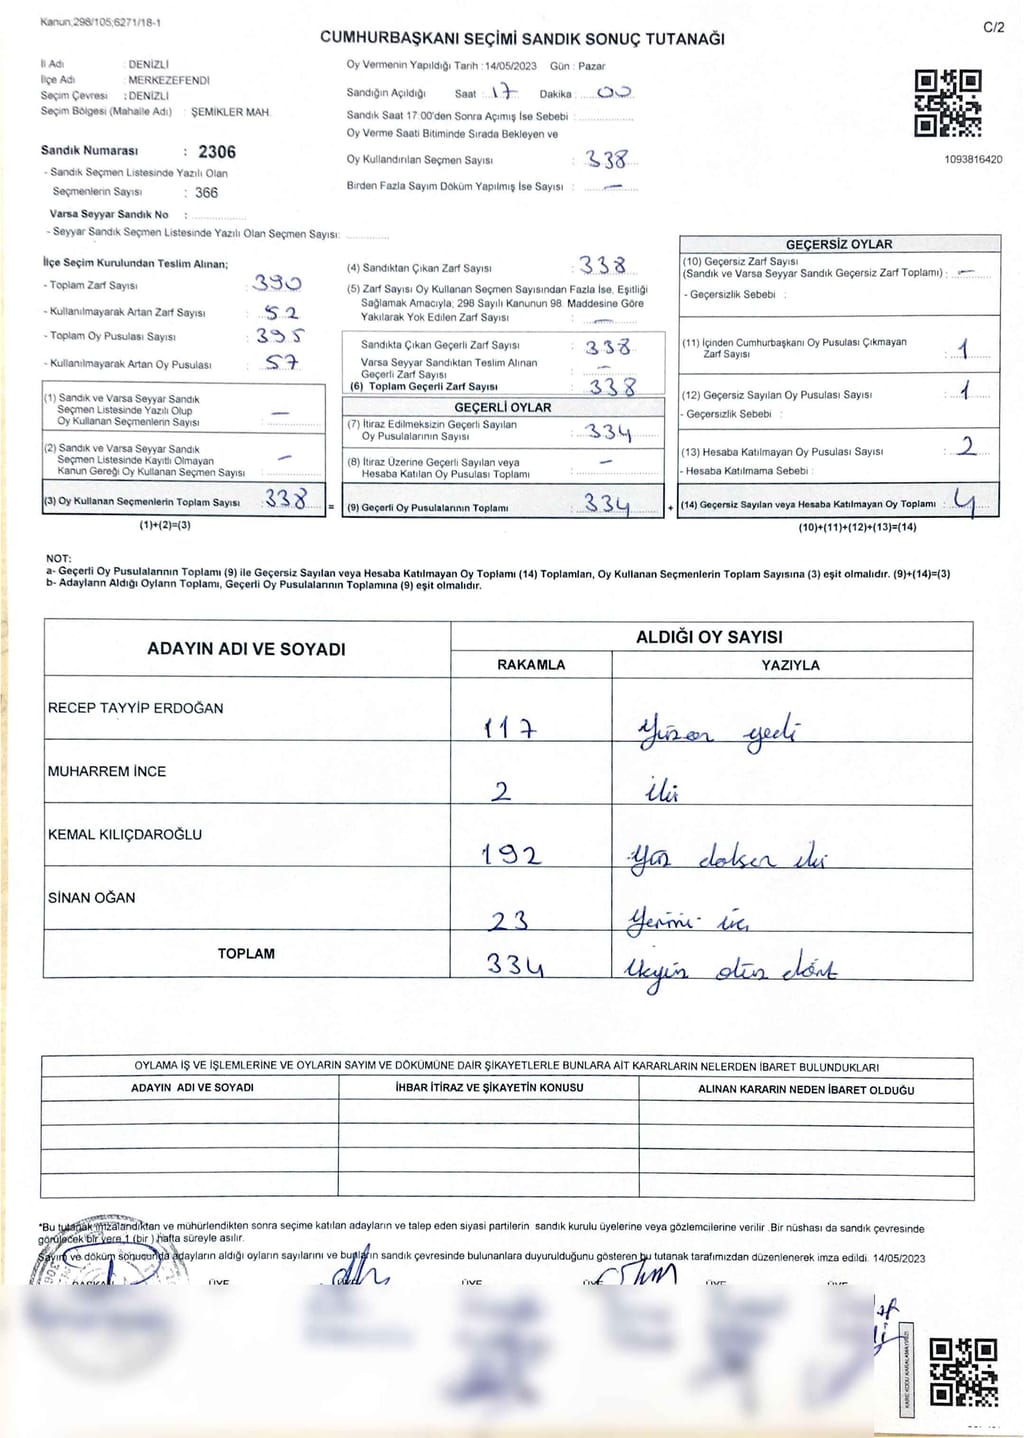 Kanun;298/105;6271/18-1
C/2
CUMHURBAŞKANI SEÇİMİ SANDIK SONUÇ TUTANAĞI
İl Adı : DENİZLİ
İlçe Adı : MERKEZEFENDİ
Seçim Çevresi : DENİZLİ
Seçim Bölgesi (Mahalle Adı) : ŞEMİKLER MAH.
Sandık Numarası : 2306
- Sandık Seçmen Listesinde Yazılı Olan
Seçmenlerin Sayısı : 366
Varsa Seyyar Sandık No :
- Seyyar Sandık Seçmen Listesinde Yazılı Olan Seçmen Sayısı:
Oy Vermenin Yapıldığı Tarih : 14/05/2023 Gün : Pazar
Sandığın Açıldığı Saat : 17 Dakika : 00
Sandık Saat 17.00'den Sonra Açımış İse Sebebi :
Oy Verme Saati Bitiminde Sırada Bekleyen ve
Oy Kullandırılan Seçmen Sayısı : 338
Birden Fazla Sayım Döküm Yapılmış İse Sayısı : —
1093816420
İlçe Seçim Kurulundan Teslim Alınan;
- Toplam Zarf Sayısı : 390
- Kullanılmayarak Artan Zarf Sayısı : 52
- Toplam Oy Pusulası Sayısı : 395
- Kullanılmayarak Artan Oy Pusulası : 57
(1) Sandık ve Varsa Seyyar Sandık
Seçmen Listesinde Yazılı Olup
Oy Kullanan Seçmenlerin Sayısı : —
(2) Sandık ve Varsa Seyyar Sandık
Seçmen Listesinde Kayıtlı Olmayan
Kanun Gereği Oy Kullanan Seçmen Sayısı : —
(3) Oy Kullanan Seçmenlerin Toplam Sayısı : 338
(1)+(2)=(3)
(4) Sandıktan Çıkan Zarf Sayısı : 338
(5) Zarf Sayısı Oy Kullanan Seçmen Sayısından Fazla İse, Eşitliği
Sağlamak Amacıyla; 298 Sayılı Kanunun 98. Maddesine Göre
Yakılarak Yok Edilen Zarf Sayısı : —
Sandıkta Çıkan Geçerli Zarf Sayısı : 338
Varsa Seyyar Sandıktan Teslim Alınan
Geçerli Zarf Sayısı : —
(6) Toplam Geçerli Zarf Sayısı : 338
GEÇERLİ OYLAR
(7) İtiraz Edilmeksizin Geçerli Sayılan
Oy Pusulalarının Sayısı : 334
(8) İtiraz Üzerine Geçerli Sayılan veya
Hesaba Katılan Oy Pusulası Toplamı : —
= (9) Geçerli Oy Pusulalarının Toplamı : 334
GEÇERSİZ OYLAR
(10) Geçersiz Zarf Sayısı
(Sandık ve Varsa Seyyar Sandık Geçersiz Zarf Toplamı) : —
- Geçersizlik Sebebi :
(11) İçinden Cumhurbaşkanı Oy Pusulası Çıkmayan
Zarf Sayısı : 1
(12) Geçersiz Sayılan Oy Pusulası Sayısı : 1
- Geçersizlik Sebebi :
(13) Hesaba Katılmayan Oy Pusulası Sayısı : 2
- Hesaba Katılmama Sebebi :
+ (14) Geçersiz Sayılan veya Hesaba Katılmayan Oy Toplamı : 4
(10)+(11)+(12)+(13)=(14)
NOT:
a- Geçerli Oy Pusulalarının Toplamı (9) ile Geçersiz Sayılan veya Hesaba Katılmayan Oy Toplamı (14) Toplamları, Oy Kullanan Seçmenlerin Toplam Sayısına (3) eşit olmalıdır. (9)+(14)=(3)
b- Adayların Aldığı Oyların Toplamı, Geçerli Oy Pusulalarının Toplamına (9) eşit olmalıdır.
ADAYIN ADI VE SOYADI
ALDIĞI OY SAYISI
RAKAMLA YAZIYLA
RECEP TAYYİP ERDOĞAN 117 Yüzon yedi
MUHARREM İNCE 2 iki
KEMAL KILIÇDAROĞLU 192 Yüz doksan iki
SİNAN OĞAN 23 Yirmi üç
TOPLAM 334 Üçyüz otuz dört
OYLAMA İŞ VE İŞLEMLERİNE VE OYLARIN SAYIM VE DÖKÜMÜNE DAİR ŞİKAYETLERLE BUNLARA AİT KARARLARIN NELERDEN İBARET BULUNDUKLARI
ADAYIN ADI VE SOYADI İHBAR İTİRAZ VE ŞİKAYETİN KONUSU ALINAN KARARIN NEDEN İBARET OLDUĞU
*Bu tutanak imzalandıktan ve mühürlendikten sonra seçime katılan adayların ve talep eden siyasi partilerin sandık kurulu üyelerine veya gözlemcilerine verilir .Bir nüshası da sandık çevresinde
görülecek bir yere 1 (bir ) hafta süreyle asılır.
Sayım ve döküm sonucunda adayların aldığı oyların sayılarını ve bunların sandık çevresinde bulunanlara duyurulduğunu gösteren bu tutanak tarafımızdan düzenlenerek imza edildi. 14/05/2023
BAŞKAN ÜYE ÜYE ÜYE ÜYE ÜYE
KARE KODU KARALAMAYINIZ!